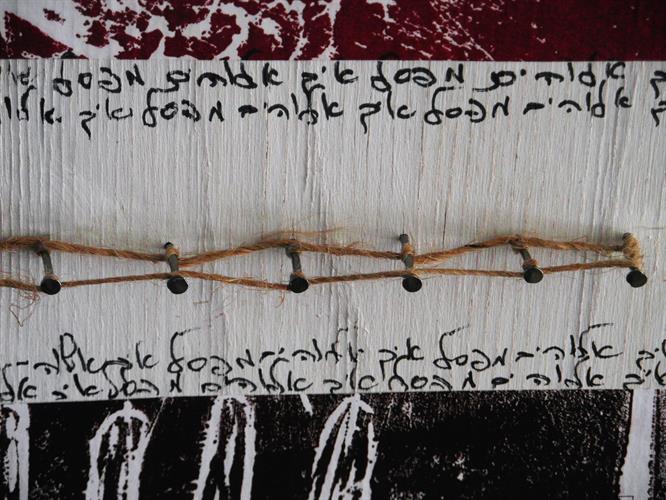 אלוהים מפסל איך אלוהים מפסל
אלוהים מפסל איך אלוהים מפסל איך
אלוהים מפסל איך אלוהים מפסל איך
אלוהים מפסל איך אלוהים מפסל איך